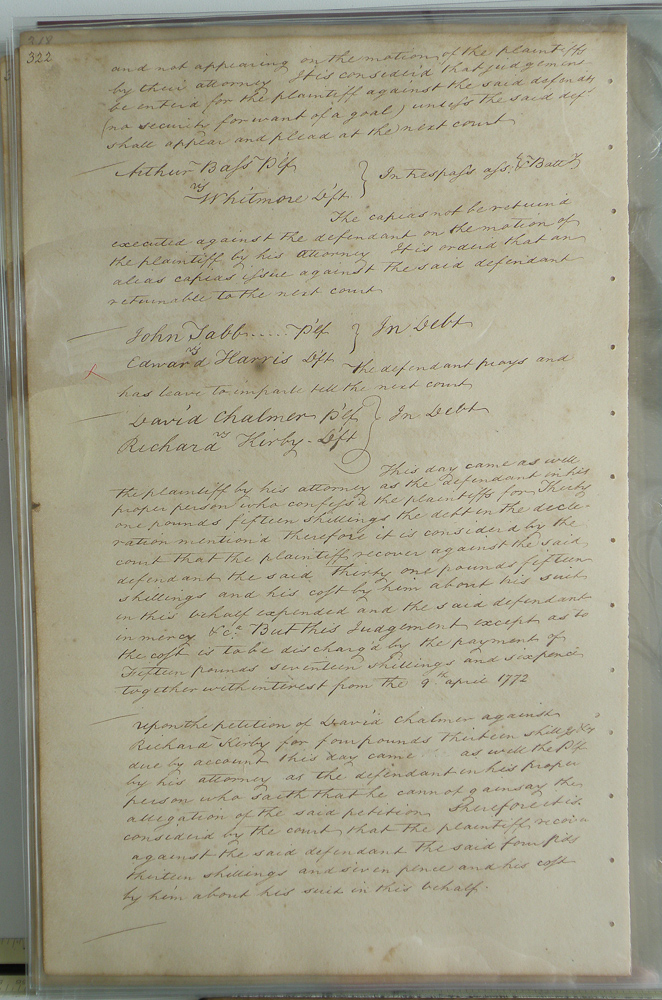 322
and not appearing on the motion of the plaintiffs
by their attorney It is considerd that judgement
be enterd for the plaintiff against the said defendts
(no security for want of a goal) unless the said deft
shall appear and plead at the next court
Arthur Bass Plf
vs
Whitmore Dft } In trespass ass. & Batty
The capias not be returnd
executed against the defendant on the motion of
the plaintiff by his attorney It is orderd that an
alias capias issue against the said defendant
returnable to the next court
John Tabb ..... Plf } In Debt
vs
Edward Harris Dft The defendant prays and
has leave to imparle till the next court
David Chalmer Plf } In Debt
vs
Richard Kerby - Dft
This day came as well
the plaintiff by his attorney as the defendant in his
proper person who confess'd the plaintiffs for Therty
one pounds fifteen shillings the debt in the decle-
ration mention'd therefore it is considerd by the
court that the plaintiff recover against the said
defendant the said thirty one pounds fifteen
shillings and his cost by him about his suit
in this behalf expended and the said defendant
in mercy &c.a But this Judgement except as to
the cost is to be discharg'd by the payment of
Fifteen pounds seventeen shillings and sixpence
together with interest from the 9th april 1772
Upon the petition of David Chalmer against
Richard Kerby for four pounds thirteen shillgs &
due by account this day came as well the Plf
by his attorney as the defendant in his proper
person who saith that he cannot gainsay the
allegation of the said petition Therefore it is
considerd by the court that the plaintiff recover
against the said defendant the said four pds
thirteen shillings and seven pence and his cost
by him about his suit in this behalf.